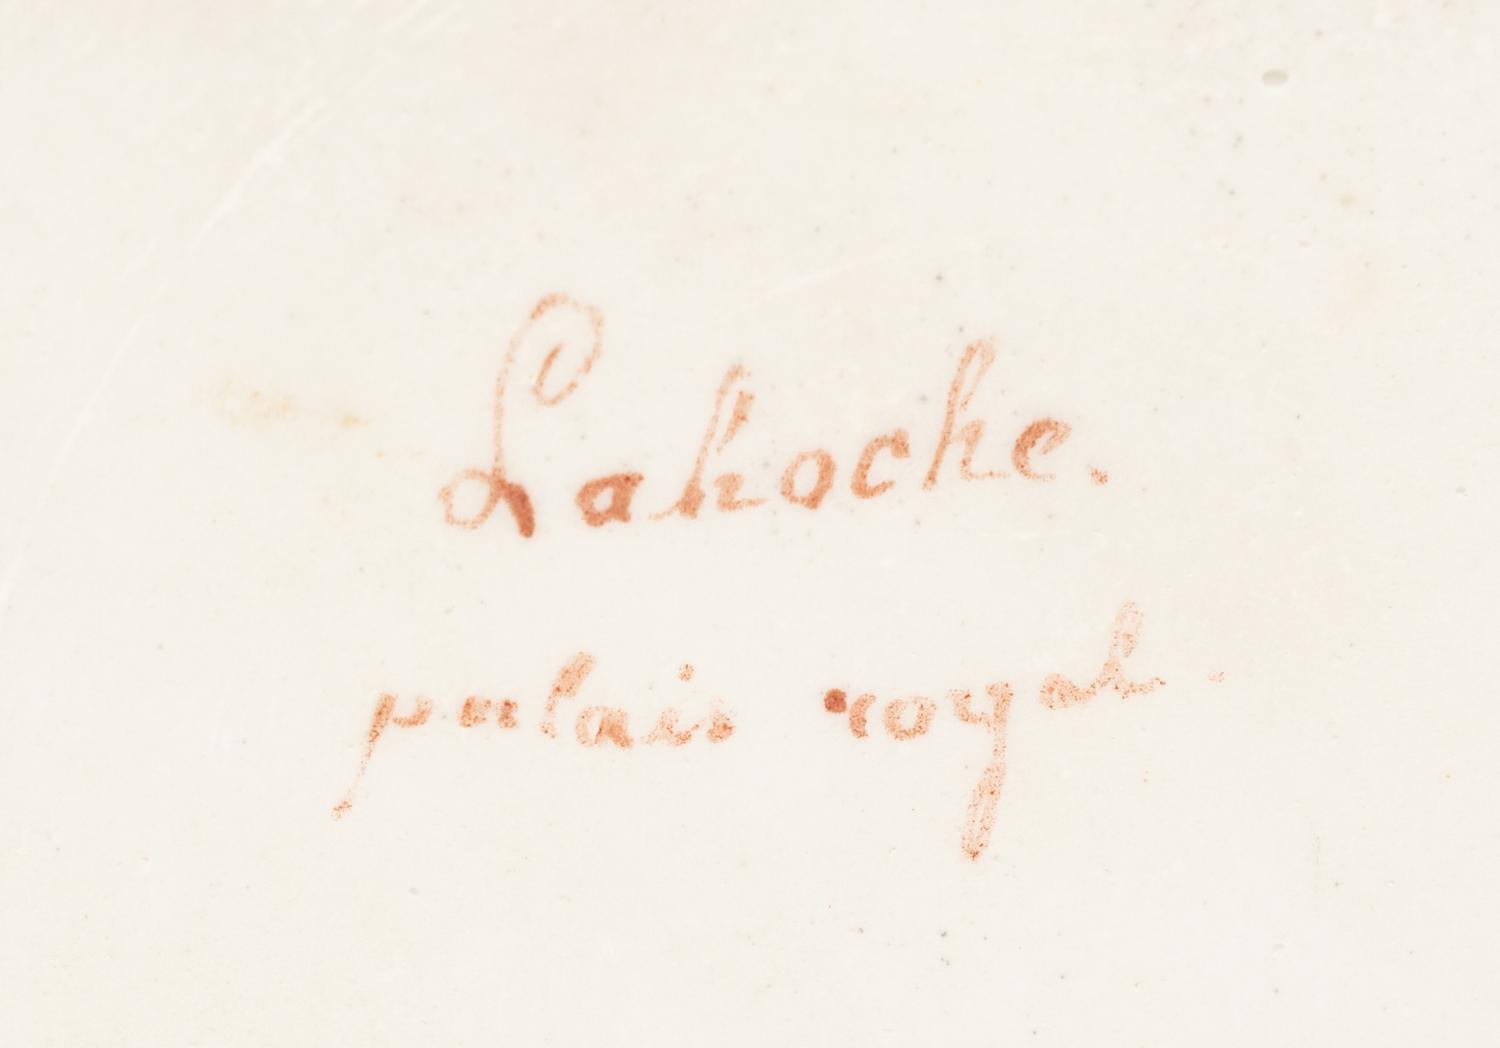 Lahoche.
palais royal.